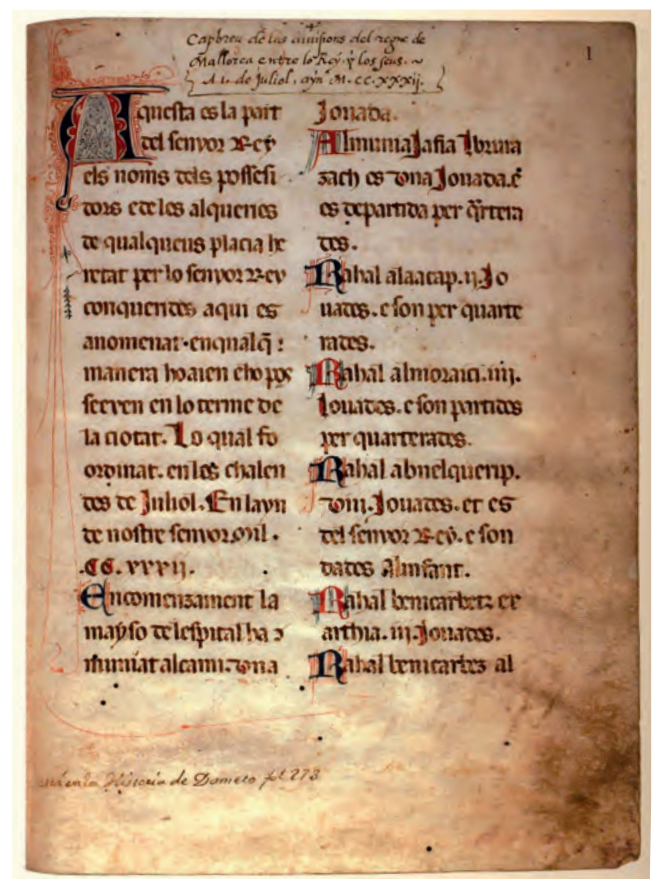 Capbreu de las divisions del regne de
Mallorca entre lo Rey y los seus.
A .1. de Juliol, añy M.CC.XXXij.
1
Aquesta es la part
del senyor Rey
els noms dels possesi
dors e de les alqueries
de qualqueus placia he
retat per lo senyor Rey
conquerides aqui es
anomenat. en qual q̄
manera ho aien e ho pos
seeyen en lo terme de
la ciotat. Lo qual fo
ordinat. en les chalen
des de Juliol. En layn
de nostre senyor. Mil.
.CC.xxxii.
En comenzament la
mayso de lespital ha
al cami. dona
Jouada.
Almunia Jafia Ibnura
zach es dona Jouada. e
es departida per qrtera
des.
Rahal alaatap. ij. Jo
uades. e son per quarte
rades.
Rahal almoraici. iiij.
Jouades. e son partides
per quarterades.
Rahal abnelquerip.
Jouades. et es
del senyor Rey. e son
dades Alinfant.
Rahal benicarbetz er
arthia. iij. Jouades.
Rahal benicarbes al
en la Historia de Dameto fol 273